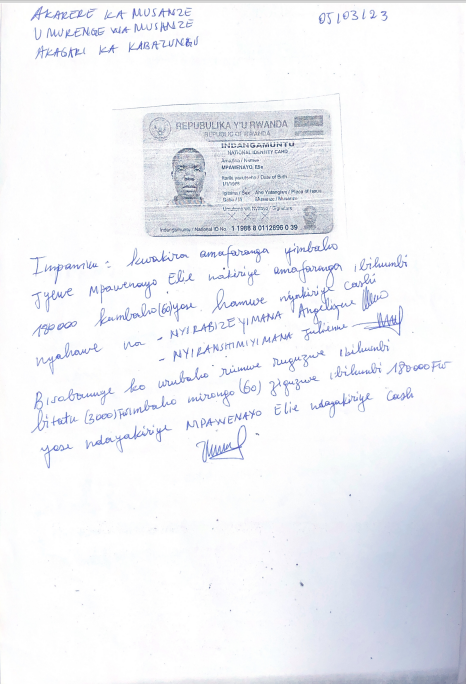 AKARERE KA MUSANZE
05/03/23
UMURENGE WA MUSANZE
AKAGARI KA KABAZUNGU
REPUBULIKA Y'U RWANDA
REPUBLIC OF RWANDA
INDANGAMUNTU
NATIONAL IDENTITY CARD
Amazina / Names
MPAWENAYO, Elie
Itariki yavutseho / Date of Birth
1/1/1988
Igitsina / Sex Aho Yatangiwe / Place of Issue
Gabo / M Musanze / Musanze
Umukono wa Nyirayo / Signature
Indangamuntu / National ID No. 1 1988 8 0112896 0 39
Impamvu: kwakira amafaranga y'imbaho
Jyewe Mpawenayo Elie nakiriye amafaranga ibihumbi
180000 kumbaho (60) yose hamwe nyakiriye cash
nyahawe na - NYIRABIZEYIMANA Angelique
- NYIRANSHIMIYIMANA Julienne
Bisobanuye ko urubaho rumwe ruguzwe ibihumbi
bitatu (3000) Fw imbaho mirongo (60) ziguzwe ibihumbi 180000 Fw
yose ndayakiriye MPAWENAYO Elie ndayakiriye cash